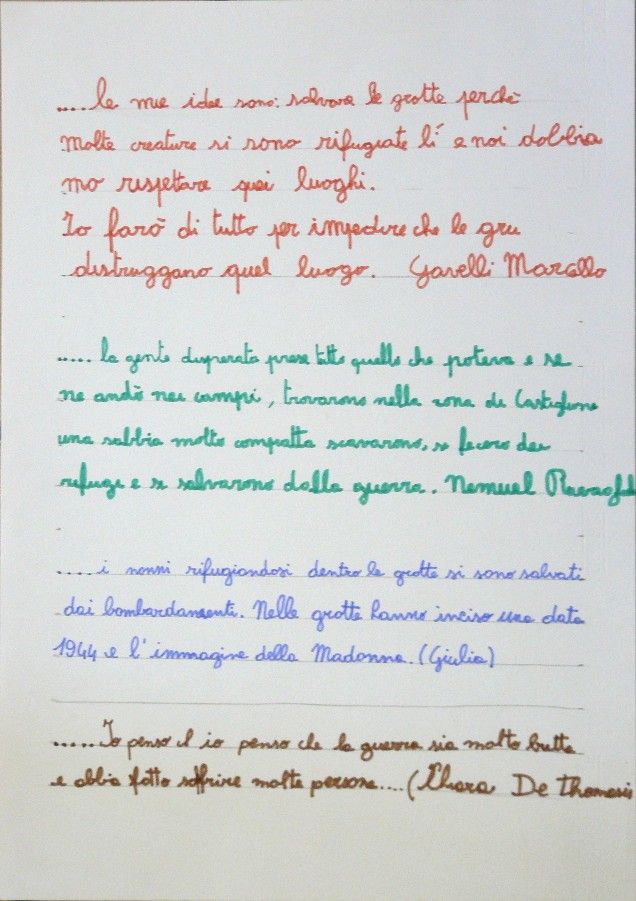 .....le mie idee sono: salvare le grotte perchè
molte creature si sono rifugiate lí e noi dobbia
mo rispettare quei luoghi.
Io farò di tutto per impedire che le gru
distruggano quel luogo. Gavelli Marcello
.....la gente disperata prese tutto quello che poteva e se
ne andò nei campi, trovarono nella zona di Castiglione
una sabbia molto compatta scavarono, si fecero dei
rifugi e si salvarono dalla guerra. Nemuel
.....i nonni rifugiandosi dentro le grotte si sono salvati
dai bombardamenti. Nelle grotte hanno inciso una data
1944 e l'immagine della Madonna. (Giulia)
.....Io penso il io penso che la guerra sia molto brutta
e abbia fatto soffrire molte persone....(Chiara De Thomasis